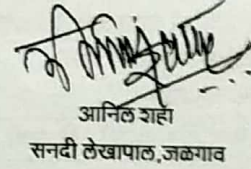 आनिल शहा
सनदी लेखापाल,जळगाव